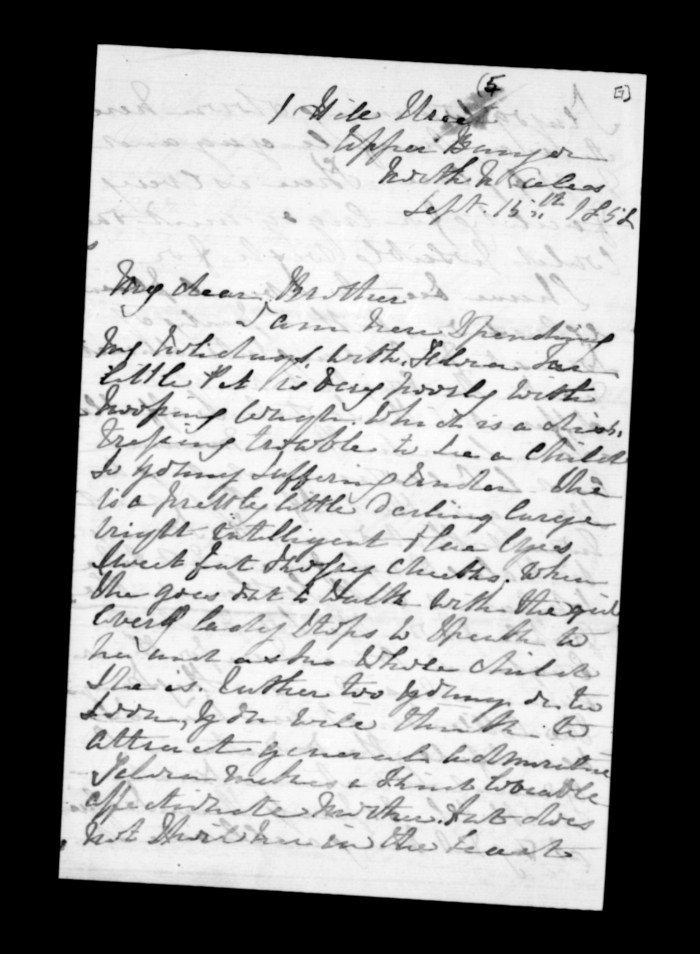 (5
1 Hill Street
Upper Bangor
North Wales
Sept. 15th 1858
My dear Brother
I am here spending
my holidays with
little Pet is very poorly with
hooping cough. Which is a dis-
tressing trouble to see a child
so young suffering under. She
is a pretty little darling large
bright intelligent blue eyes
sweet fat cheeks. When
she goes out to walk with the girl
every lady stops to speak to
her and asks whose child
she is. Rather too young or too
soon, you will think to
attract general admiration
makes a most loveable
affectionate mother. but does
not her in the least